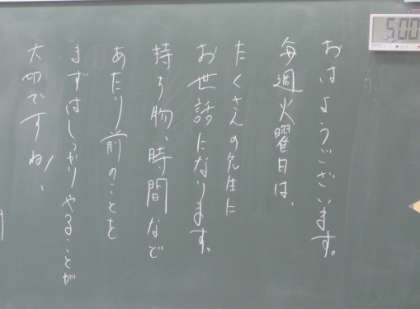 おはようございます。
毎週火曜日は、
たくさんの先生に
お世話になります。
持ち物、時間など
あたり前のことを
まずはしっかりやることが
大切ですね!、
5:00